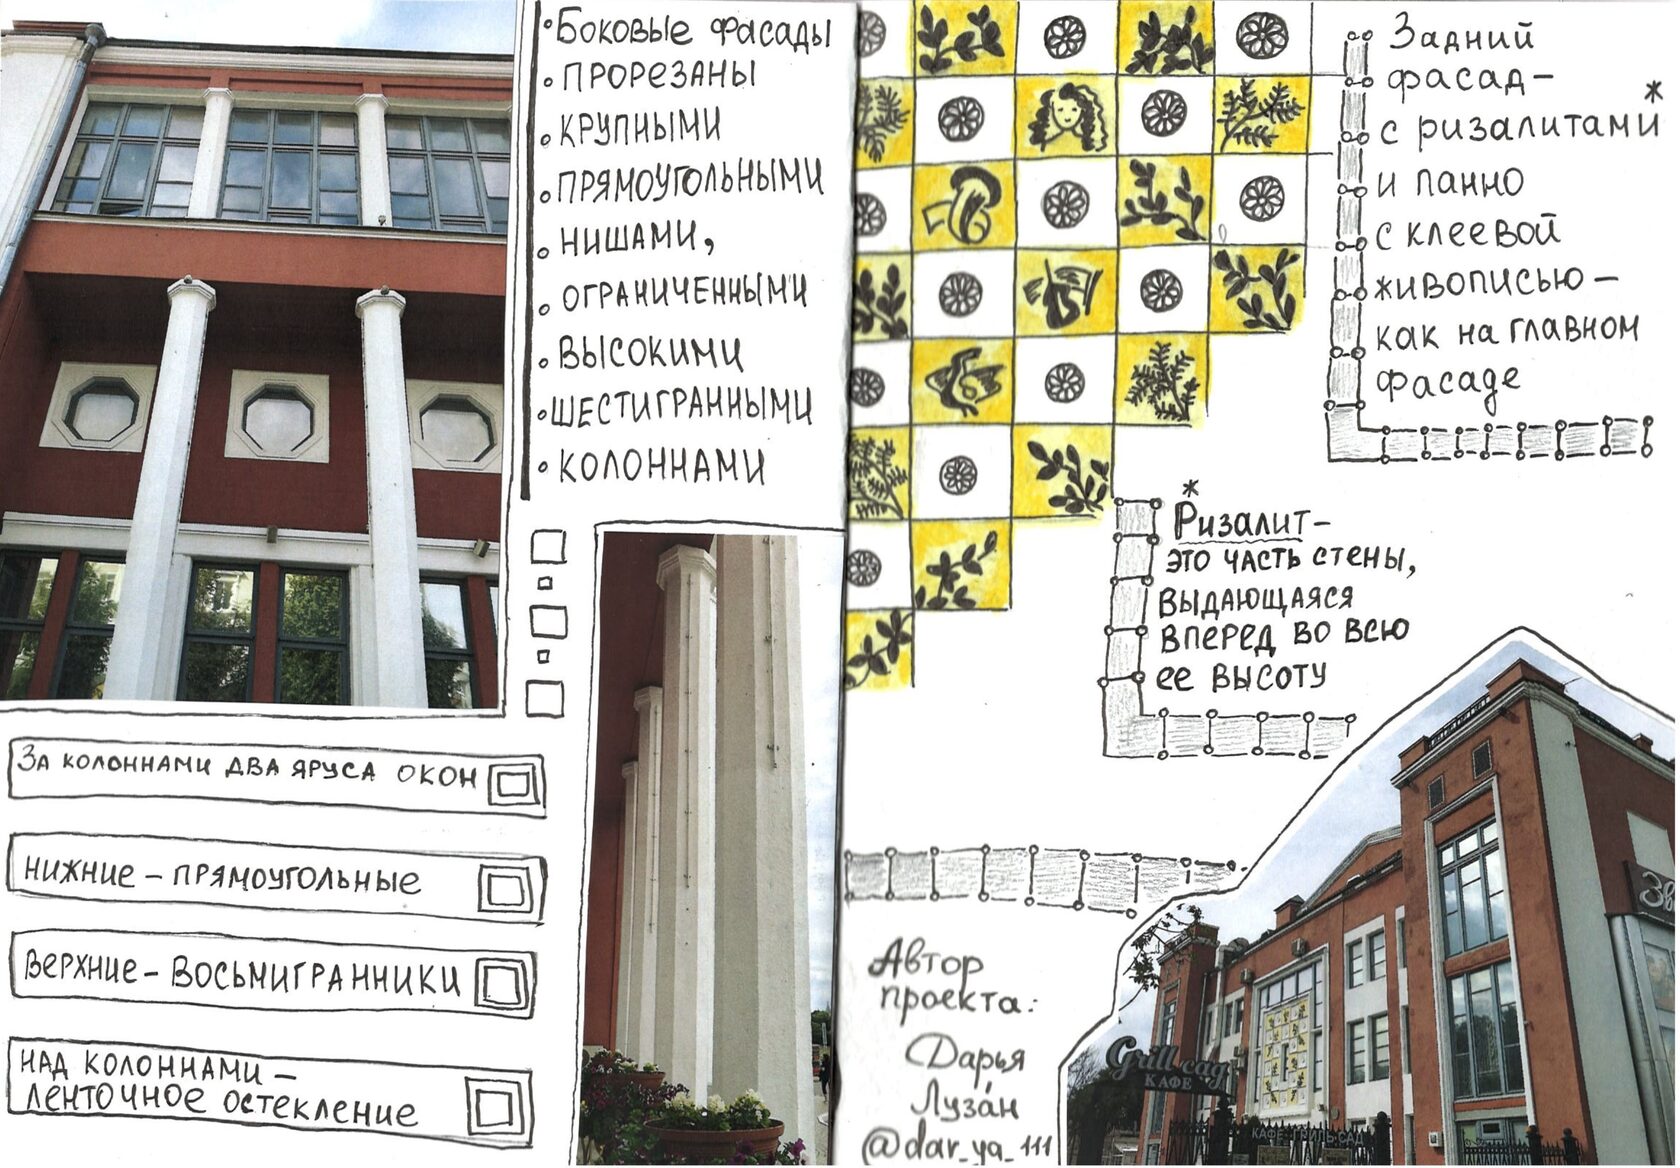 Боковые фасады
прорезаны
крупными
прямоугольными
нишами,
ограниченными
высокими
шестигранными
колоннами
За колоннами два яруса окон
нижние – прямоугольные
верхние – восьмигранники
над колоннами –
ленточное остекление
Задний
фасад –
с ризалитами *
и панно
с клеевой
живописью –
как на главном
фасаде
*
Ризалит –
это часть стены,
выдающаяся
вперед во всю
ее высоту
Автор
проекта:
Дарья
Луза́н
@dar_ya_111
Grill сад
КАФЕ
КАФЕ ГРИЛЬ САД
Зв